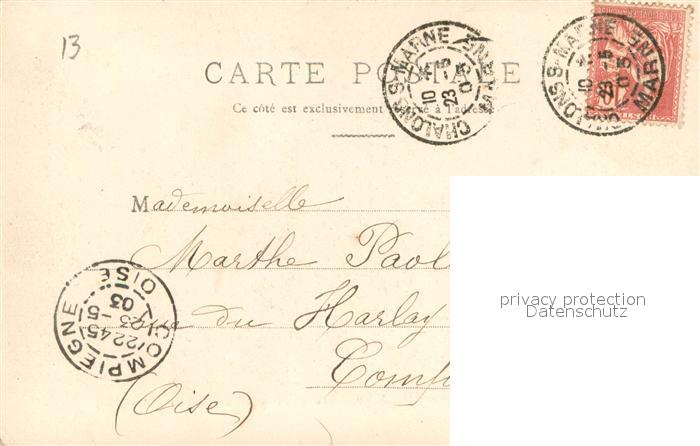 13
CARTE POSTALE
Ce côté est exclusivement réservé à l'adresse
CHALONS S-MARNE MARNE
10
23 -5
03
CHALONS S-MARNE MARNE
10
23 -5
03
Mademoiselle
Marthe Paol
rue du Harlay
Comp
(Oise)
COMPIEGNE OISE
22 45
23 -5
03
privacy protection
Datenschutz